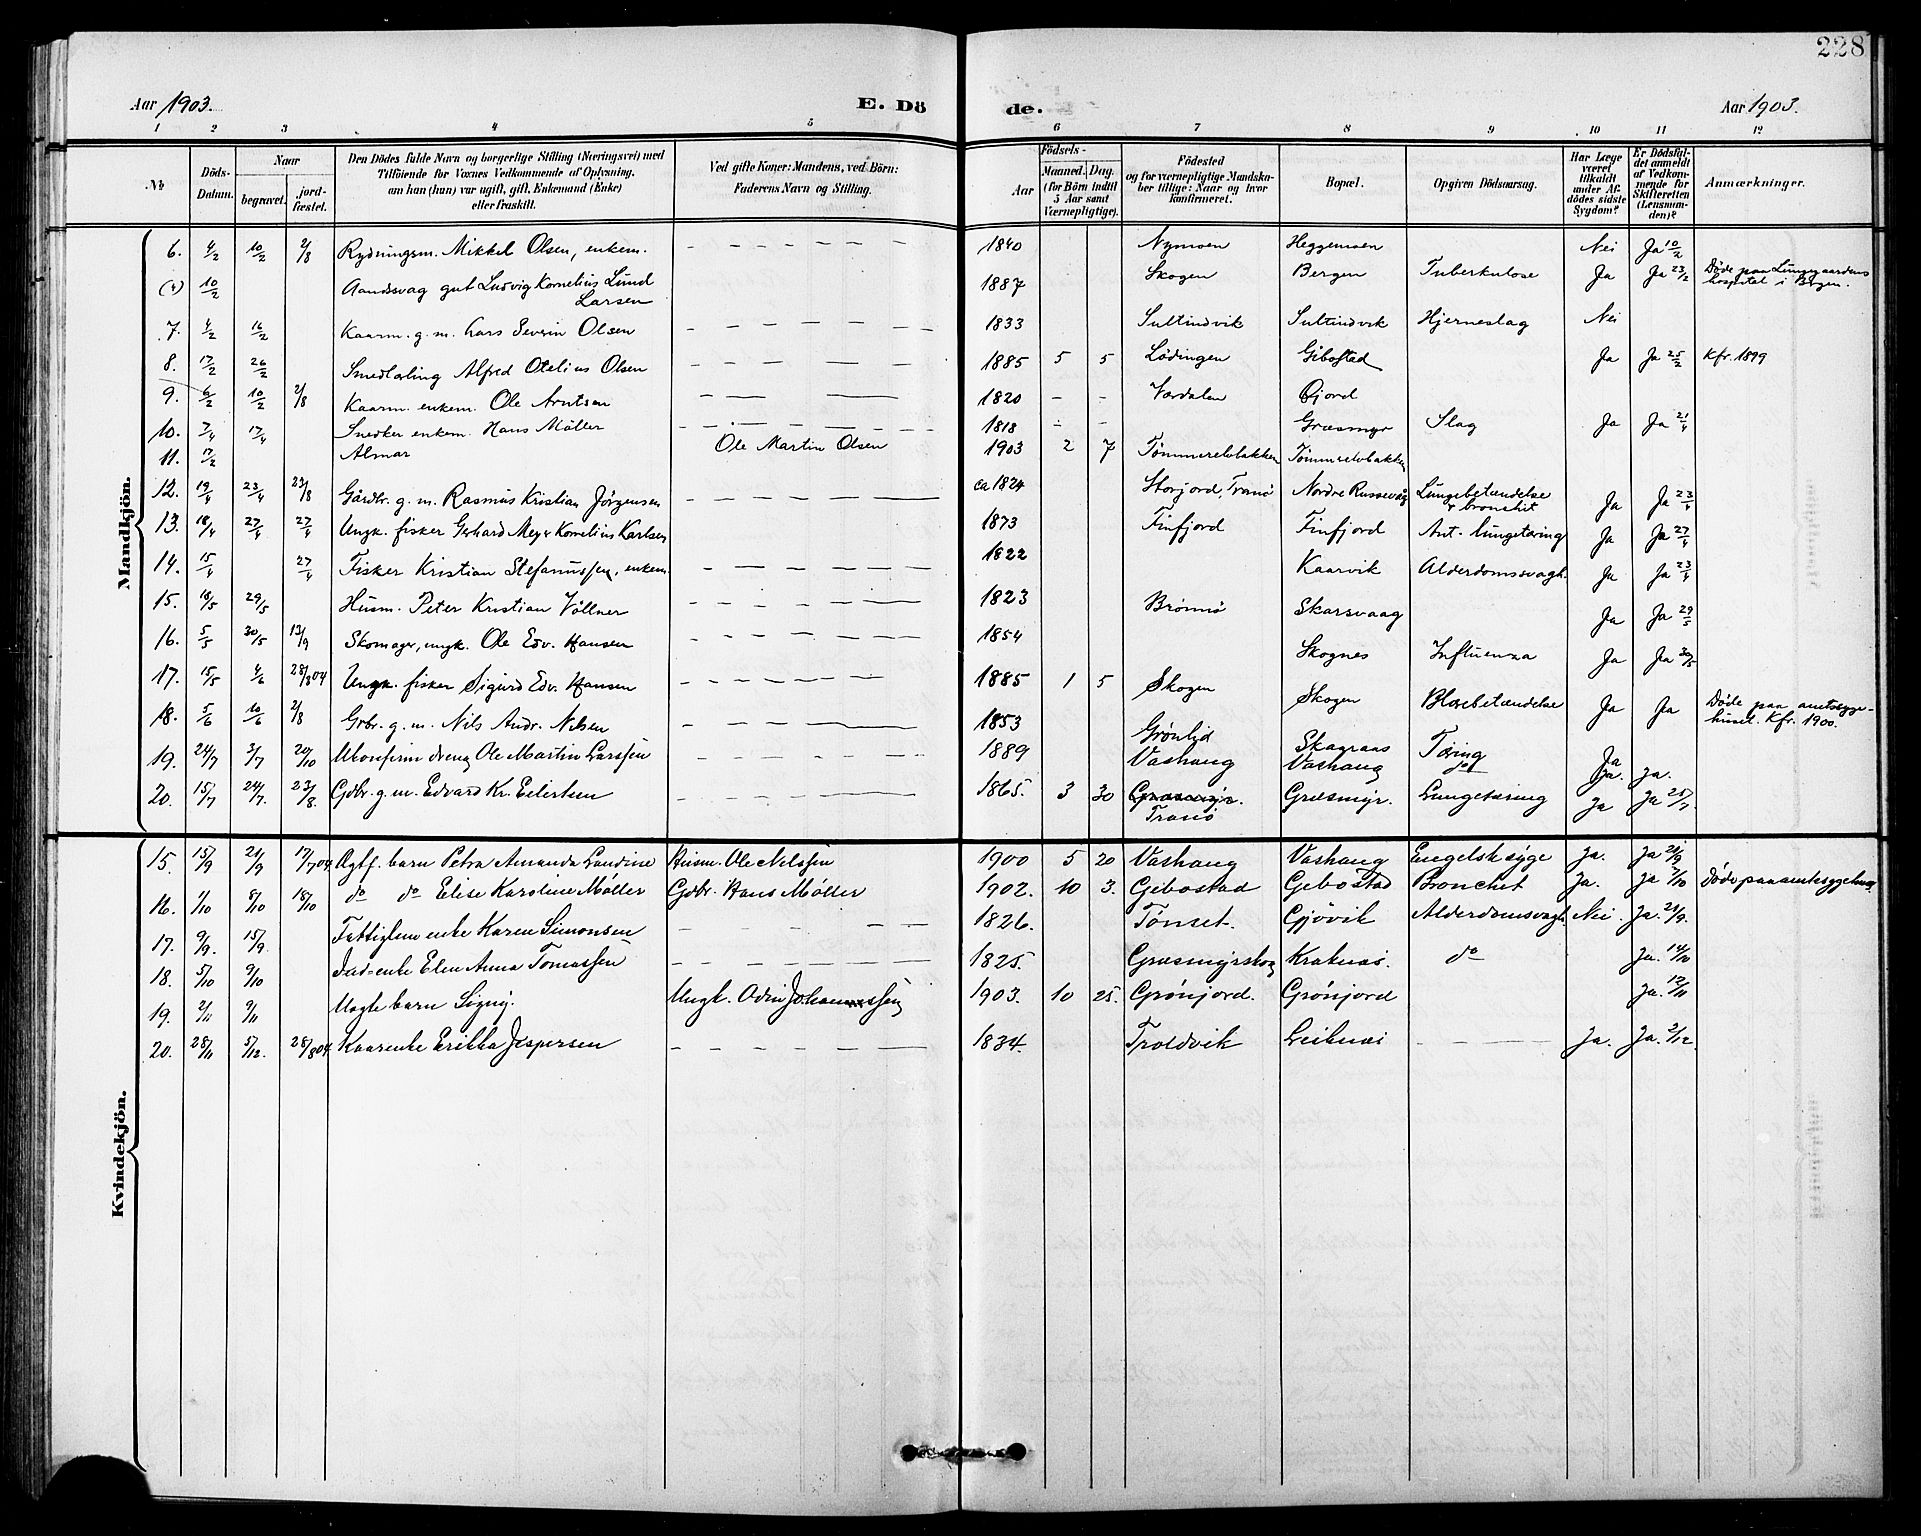 228
Aar 1903. E. Dö de. Aar 1903.
1 2 3 4 5 6 7 8 9 10 11 12
No Döds-Datum. Naar begravet. jordfæstet. Den Dödes fulde Navn og borgerlige Stilling (Næringsvei) med Tilföiende for Voxnes Vedkommende af Oplysning, om han (hun) var ugift, gift, Enkemand (Enke) eller fraskilt. Ved gifte Koner: Mandens, ved Börn: Faderens Navn og Stilling. Födsels- Aar Maaned. Dag. (for Börn indtil 5 Aar samt Værnepligtige). Födested og for værnepligtige Mandskaber tillige: Naar og hvor konfirmeret. Bopæl. Opgiven Dödsaarsag. Har Læge været tilkaldt under Afdödes sidste Sygdom? Er Dödsfaldet anmeldt af Vedkommende for Skifteretten (Lensmanden)? Anmærkninger.
Mandkjön.
6. 4/2 10/2 2/8 Rydningsm. Mikkel Olsen, enkem. — — — — — — 1840 Nymoen Heggemoen Nei Ja 10/2
(4) 10/2 Aandssvag gut Ludvig Kornelius Lund Larsen 1887 Skogen Bergen Tuberkulose Ja Ja 23/2 Døde paa Lungegaardens hospital i Bergen.
7. 4/2 16/2 Kaarm. g. m. Lars Severin Olsen — — — — — — 1833 Sultindvik Sultindvik Hjerneslag Nei
8. 17/2 26/2 Smedlærling Alfred Otelius Olsen — — — — 1885 5 5 Lødingen Gibostad Ja Ja 25/2 Kfr. 1899
9. 6/2 10/2 2/8 Kaarm. enkem. Ole Arntsen — — — — 1820 - - Værdalen Gjord
10. 7/4 17/4 Snedker enkem. Hans Möller — — — — — 1818 - - Græsmyr Slag Ja Ja 21/4
11. 17/2 Almar Ole Martin Olsen 1903 2 7 Tømmerelvbakken Tømmerelvbakken
12. 19/4 23/4 23/8 Gårdbr. g. m. Rasmus Kristian Jörgensen — — — — — 1824 ca Storjord, Tranö Nordre Russevåg Lungebetændelse & bronchit Ja Ja 23/4
13. 18/4 27/4 27/4 Ungk. fisker Gerhard Meyer Kornelius Karlsen — — — — — 1873 Finfjord Finfjord Ant. lungetæring Ja Ja 27/4
14. 15/4 27/4 Fisker Kristian Stefanussen, enkem. — — — — — 1822 Kaarvik Alderdomssvagh. Ja Ja 23/4
15. 18/5 29/5 Husm. Peter Kristian Völlner — — — — — 1823 Brønnø Skarsvaag Ja Ja 29/5
16. 5/5 30/5 13/9 Skomager, ungk. Ole Edv. Hansen — — — — — 1854 Skognes Influenza Ja Ja 30/5
17. 15/5 4/6 28/8 04 Ungk. fisker Sigurd Edv. Hansen — — — — — 1885 1 5 Skogen Skogen Blærebetændelse Ja Ja Døde paa amtssygehuset. Kfr. 1900.
18. 5/6 10/6 2/8 Grbr. g. m. Nils Andr. Nilsen — — — — — 1853 Grønlid Skagraas Tæring Ja
19. 24/7 3/7 20/10 Ukonfirm. dreng Ole Martin Larssen — — — — — 1889 Vashaug Vashaug do Ja. ja.
20. 15/7 24/7. 23/8. Gdbr. g. m. Edvard Kr. Eilertsen — — — — — 1865. 3 30 Græsmyr. Tranö Græsmyr. Lungetæring Ja Ja 25/7
Kvindekjön.
15. 15/9 21/9 17/7 04 Ægtf. barn Petra Amanda Landine Husm. Ole Nilssen 1900 5 20 Vashaug Vashaug Engelsk syge Ja. Ja 21/9
16. 1/10 8/10 18/10 do do Elise Karoline Møller Gdbr. Hans Møller 1902. 10 3. Gebostad Gebostad Bronchet Ja. Ja 7/10 Døde paa amtssygehus
17. 9/9. 15/9. Fattiglem enke Karen Simonsen — — — — — 1826. Tønset. Gjövik Alderdomsvagh. Nei Ja. 21/9.
18. 5/10 9/10 Ind-enke Elen Anna Tomassen — — — — — 1825. Græsmyrskog Kraknæs. do Ja. 14/10
19. 2/11 9/11 Uægte barn Signy. Ungk. Odin Johannessen 1903. 10 25. Grönjord. Grönjord Ja. 12/11
20. 28/11 5/12. 28/8 04 Kaarenke Erikka Jespersen — — — — — 1834. Troldvik Leiknæs — — — — Ja. Ja. 2/12